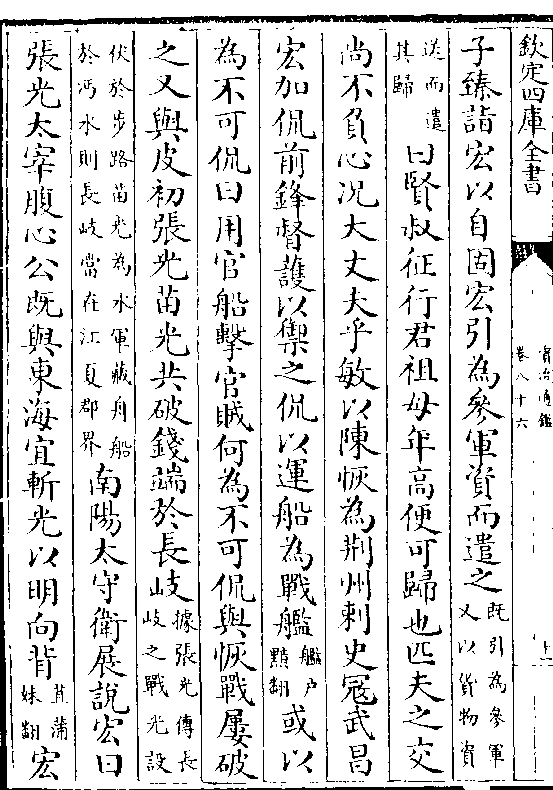 欽定四庫全書
資治通鑑
卷八十六
十一
子臻詣宏以自固宏引為參軍資而遣之既引為參軍又以貨物資
送而遣其歸曰賢叔征行君祖母年高便可歸也匹夫之交
尚不負心况大丈夫乎敏以陳恢為荆州刺史冦武昌
宏加侃前鋒督護以禦之侃以運船為戰艦艦户黯翻或以
為不可侃曰用官船擊官賊何為不可侃與恢戰屢破
之又與皮初張光苗光共破錢端於長岐據張光傳長岐之戰光設
伏於步路苗光為水軍藏舟船於沔水則長岐當在江夏郡界南陽太守衛展說宏曰
張光太宰腹心公既與東海宜斬光以明向背背蒲妹翻宏